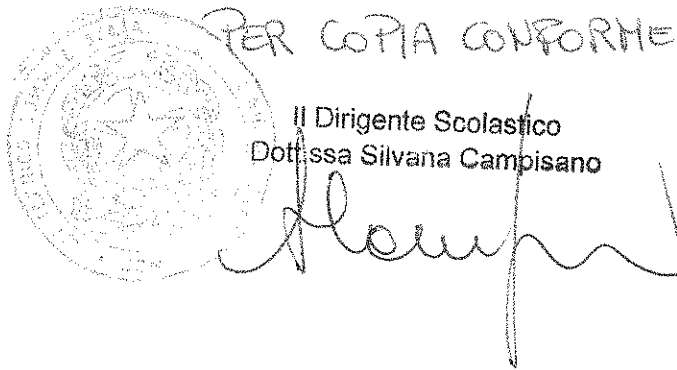 PER COPIA CONFORME
Il Dirigente Scolastico
Dott.ssa Silvana Campisano